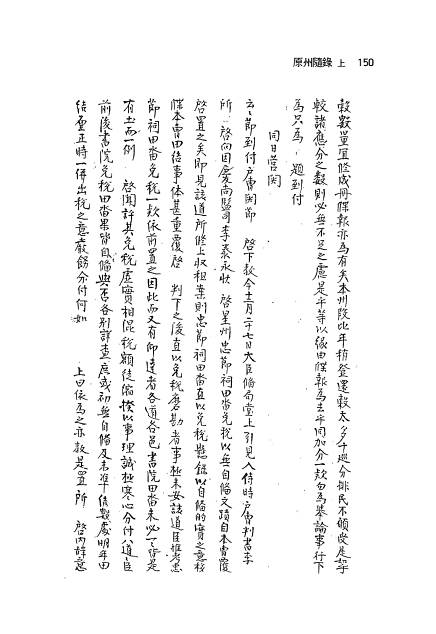 原州隨錄 上 150
穀數量宜修成冊牒報亦爲有矣本州段比年積登還穀太多
較諸應分之數則必無不足之慮是乎等以緣由牒報爲去乎同加分一款勿爲擧論事行下
爲只爲 題到付
同日營關
云云節到付戶曹關節 啓下敎今十二月二十七日大臣備局堂上引見入侍時戶曹判書李
所 啓向因慶尙監司李泰永狀 啓星州忠節祠田畓免稅以無自備文蹟自本曹覆
啓置之矣卽見該道所修上收租案則忠節祠田畓直以免稅懸錄以自備的實之意枚
牒本曹田結事体甚重覆啓 判下之後直以免稅磨勘者事極未安該道臣推考忠
節祠田畓免稅一款依前置之因此而又有仰達者各道各邑書院田畓未必皆是
有土而一例 啓聞許其免稅虛實相混稅額徒縮揆以事理誠極寒心分付八道臣
前後書院免稅田畓果皆自備與否各別詳查
結厘正時一併出稅之意嚴飭分付何如 上曰依爲之亦敎是置 所 啓內辭意